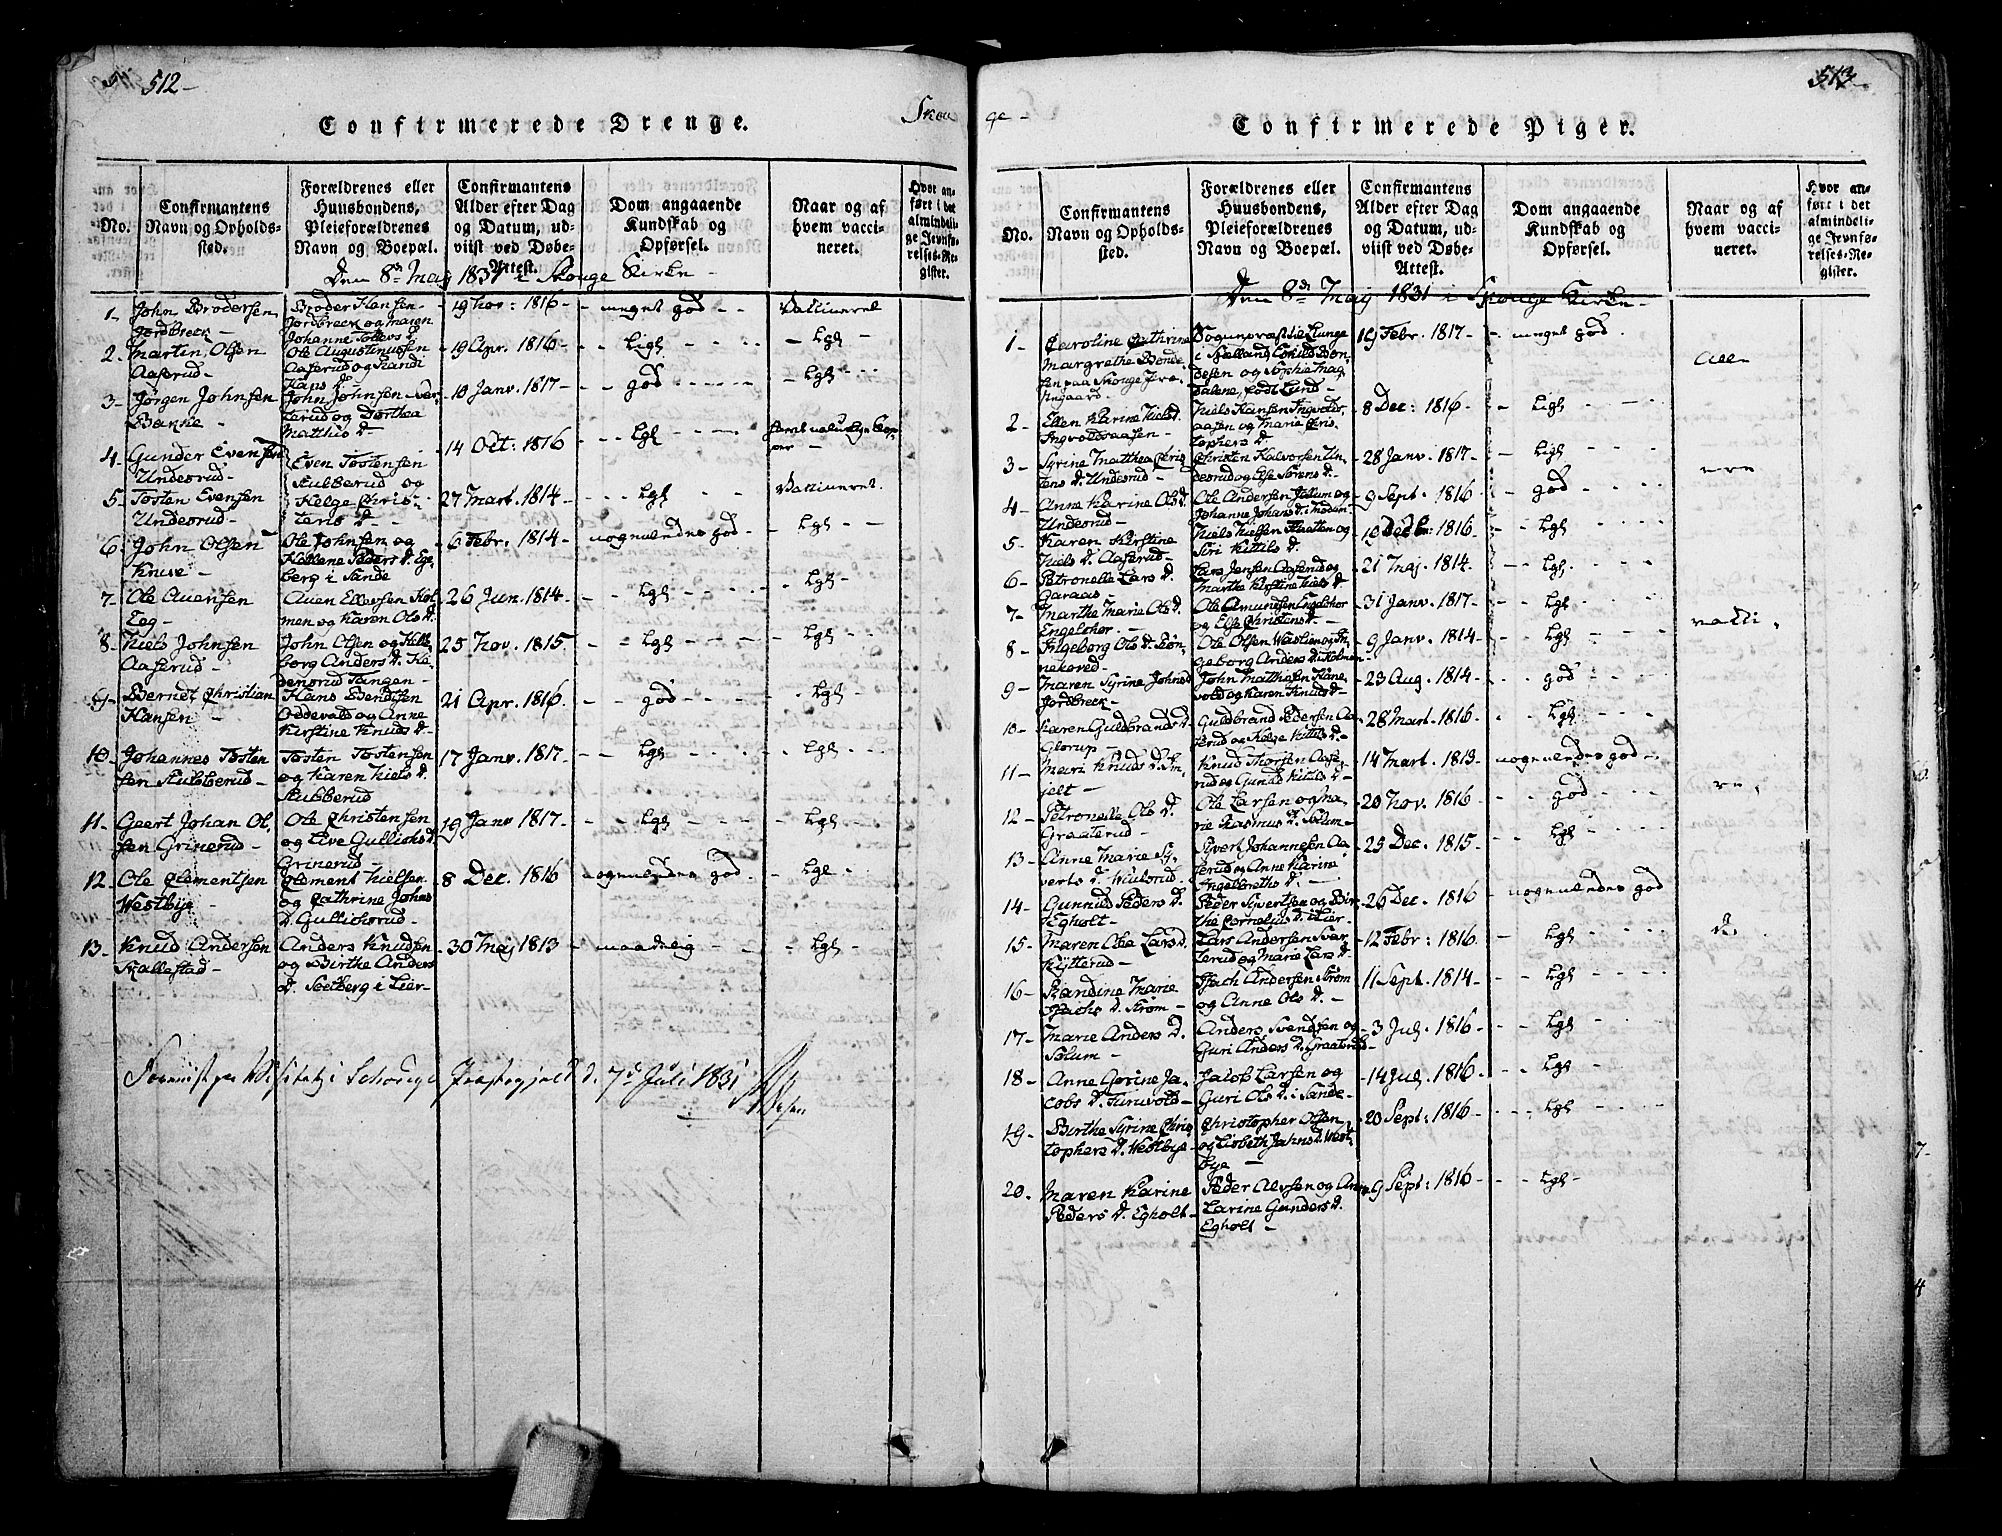 512-
Confirmerede Drenge.
Skou
No.
Confirmantens
Navn og Opholds-
sted.
Forældrenes eller
Huusbondens,
Pleieforældrenes
Navn og Boepæl.
Confirmantens
Alder efter Dag
og Datum, ud-
viist ved Døbe-
Attest.
Dom angaaende
Kundskab og
Opførsel.
Naar og af
hvem vacci-
neret.
Hvor an-
ført i det
almindeli-
ge Jevnfø-
relses-Re-
gister.
Den 8de May 1831 i Skouge Kirke -
1- John Brodersen
Jordbreck -
Broder Hansen
Jordbreck og maren
Johanne Tollevs D.
- 19 Nov: 1816 -
- meget god - -
Vaccineret
2- Martin Olsen
Aaserud -
Ole Augustinussen
Aaserud og Randi
Hans D. -
- 19 Apr. 1816 -
Ligl
- Lgl -
3- Jörgen Johnsen
Bakke -
John Johnsen
terud og Dorthea
Matthis D.
- 10 Janv. 1817 -
- god - - -
- Lgl - -
4- Gunder Evensen
Underud -
Even Tostensen
Stubberud og
Helge Chris-
tens D. -
- 14 Oct: 1816
- - Lgl - - -
5- Tosten Evensen
Underud -
27 Mart. 1814 -
- - Lgl - -
Vaccineret.
6- John Olsen
Knive -
Ole Johnsen og
Peders D. Ege-
berg i Sande
- 6 Febr. 1814 -
nogenledes god -
- Lgl - -
7- Ole Avensen
Eeg -
Aven Ellevsen Hol-
men og Karen Ols D.
- 26 Jun. 1814 -
- - Lgl - - -
- Lgl -
8- Niels Johnsen
Aaserud -
John Olsen og Hel-
borg Anders D. He-
denrud Tangen -
25 Nov. 1815.
- - Lgl - - -
- Lgl -
9- Berndt Christian
Hansen -
Hans Bendtsen
Oddevald og Anne
Kirstine Knuds D. -
21 Apr. 1816.
- - god - - -
- Lgl -
10- Johannes Tosten
sen Stubberud -
Tosten Tostensen
og Karen Niels D.
Stubberud
- 17 Janv. 1817 -
- - Lgl - - -
- Lgl -
11- Geert Johan Ol-
sen Grinerud -
Ole Christensen
og Live Gullichs D.
Grinerud -
19 Janv 1817 -
- - Lgl - - -
- Lgl -
12- Ole Clementsen
Westbye -
Clement Nielsen
og Cathrine Johns
D. Gullichsrud -
- 8 Dec. 1816
- nogenledes god -
- Lgl -
13- Knud Andersen
Skallestad -
Anders Knudsen
og Birthe Anders
D. Solberg i Lier -
- 30 May 1813 -
maadelig -
- Lgl -
Foreviist paa Visitatz i Schouge Præstegjeld d. 7de Juli 1831
513
ge -
Confirmerede Piger.
No.
Confirmantens
Navn og Opholds-
sted.
Forældrenes eller
Huusbondens,
Pleieforældrenes
Navn og Boepæl.
Confirmantens
Alder efter Dag
og Datum, ud-
viist ved Døbe-
Attest.
Dom angaaende
Kundskab og
Opførsel.
Naar og af
hvem vacci-
neret.
Hvor an-
ført i det
almindeli-
ge Jevnfø-
relses-Re-
gister.
Den 8de May 1831 i Skouge Kirke -
1- Caroline Cathrine
Margrethe Bonde-
sen paa Skouge Præ-
stegaard -
Sognepræst i Lunge
i Sælland Eskild Bon-
desen og Sophie Mag-
dalene, født Lund
19 Febr. 1817 -
- meget god.
alle
2- Ellen Karine Niels D.
Ingvoldsaasen -
Niels Hansen Ingvolds-
aasen og Marie Chris-
tophers D. -
- 8 Dec: 1816 -
- - Ligl - - -
3- Syrine Matthea Chris-
tens D. Underud -
Christen Halvorsen Un-
derud og Else Sörens D.
- 28 Janv. 1817 -
- - Ligl - - -
ere
4- Anne Karine Ols D.
Underud -
Ole Andersen Solum og
Johanne Johans D. i Modum
- 9 Sept. 1816
god - - -
5- Karen Kirstine
Niels D. Aaserud -
Niels Nielsen Flaatten og
Siri Kittils D. -
- 10 Decbr: 1816.
- - Lgl - - -
6- Petronelle Lars D.
Garaas
Lars Jensen Aaserud og
Marthe Kirstine Niels D.
- 21 Maj. 1814.
- - Lgl - - -
7- Marthe Marie Ols D.
Engelshor -
Ole Amundsen Engelshor
og Else Christens D. -
- 31 Janv. 1817 -
- - Lgl - - -
vacci-
8- Ingeborg Ols D. Rön-
nehoved -
Ole Olsen og In-
geborg Anders D. Holmen
- 9 Janv. 1814 -
- Lgl - - -
9- Maren Syrine Johns D.
Jordbreck -
John Matthesen Hane-
vold og Karen Knuds D. -
- 23 Aug. 1814 -
- - god - - -
10- Karen Guldbrands D.
Glorup -
Guldbrand Pedersen Aa-
serud og Helge Kittils D. -
- 28 Mart. 1816.
- - Lgl - - -
11- Mari Knuds D.
Knud Thorsen Aase-
rud og Gunild Kittils D. -
- 14 Mart. 1813 -
nogenledes god -
re.
12- Petronelle Ols D.
Graaterud -
Ole Larsen og Ma-
rie Rasmus D. Solum -
- 20 Nov. 1816
- - god - - -
13- Anne Marie Sy-
verts D.
Sivert Johannesen Aa-
serud og Anne Karine
Ingebreths D. -
- 25 Dec. 1815 -
- - Lgl - - -
14- Gunnild Peders D.
Egholt -
Peder Syvertsen og Bir-
the Cornelius D. i Lier -
- 26 Dec. 1816 -
nogenledes god
15- Maren Oba Lars D.
Kytterud -
Lars Andersen Svar-
terud og Marie Lars D.
- 12 Febr: 1816.
- - Lgl - - -
D
16- Randine Marie
Isachs D. Ström -
Isach Andersen Ström
og Anne Ols D. -
- 11 Sept. 1814 -
- - Lgl - - -
17- Marie Anders D.
Solum -
Anders Svendsen og
Guri Anders D. Graaterud
- 3 Julj. 1816 -
- - Lgl - - -
18- Anne Gorine Ja-
cobs D.
Jacob Larsen og
Guri Ols D. i Sande -
- 14 Julj. 1816 -
- - Lgl - - -
19- Birthe Syrine Chris-
tophers D. Westbye -
Christopher Olsen
og Lisbeth Jahns D. West-
bye -
- 20 Sept: 1816 -
- - Lgl - - -
20- Maren Karine
Peders D. Egholt -
Peder Alvsen og Anne
Larine Gunders D.
Egholt -
- 9 Sept: 1816 -
- - Lgl -